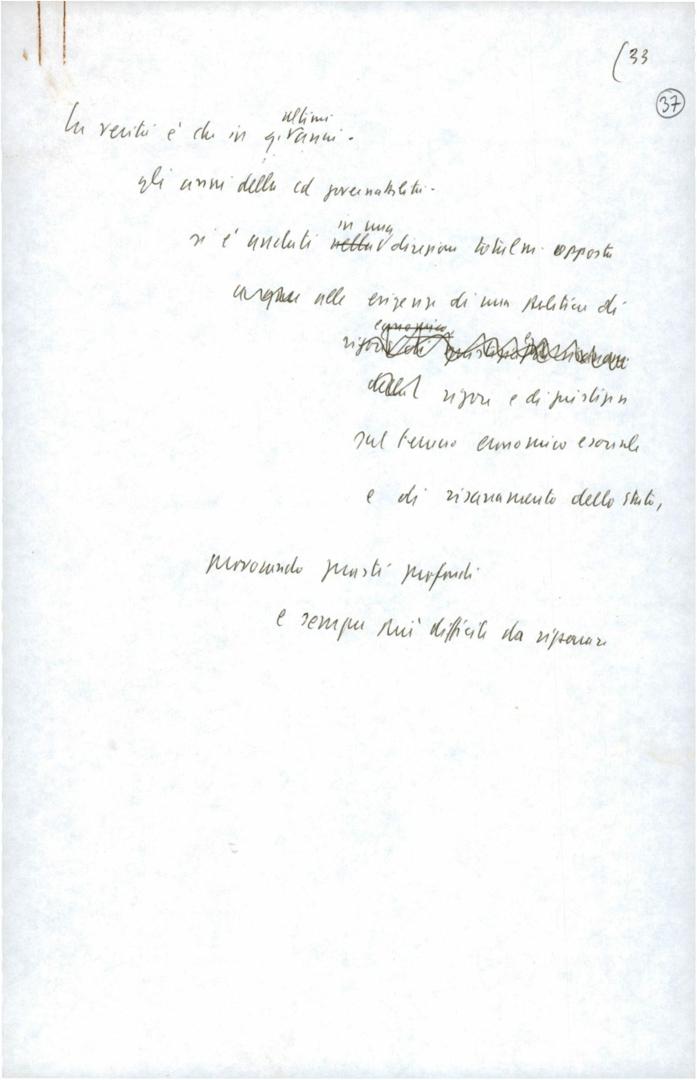 (33
37
ultimi
La verità è che in q. anni -
gli anni della cd governabilità -
in una
si è andati nella direzione totalm. opposta
alle esigenze di una politica di
economico
rigore
della rigore e di giustizia
sul terreno economico e sociale
e di risanamento dello Stato,
provocando guasti profondi
e sempre più difficili da riparare